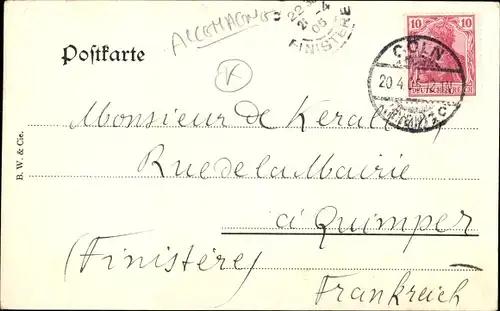 ALLEMAGNE
22
05
FINISTERE
10 10
DEUTSCHES REICH
CÖLN
20 4
Postkarte
K
B. W. & Cie.
Monsieur de
Rue de la Mairie
à Quimper
(Finistère)
Frankreich